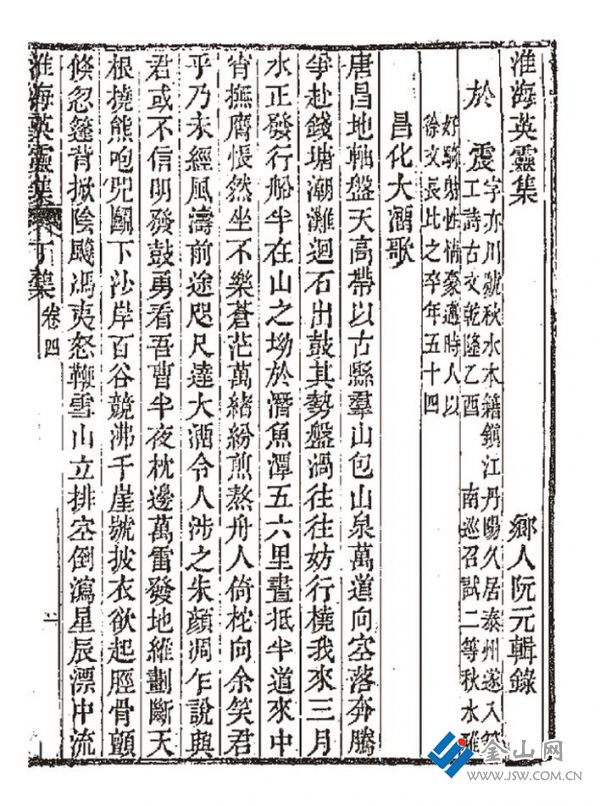 淮海英靈集
鄉人阮元輯錄
於震
字亦川號秋水本籍鎮江丹陽久居泰州遂入籍
工詩古文乾隆乙酉 南巡召試二等秋水雅
好騎射性情豪邁時人以
徐文長比之卒年五十四
昌化大溜歌
唐昌地軸盤天高帶以古縣羣山包山泉萬道向空落奔騰
爭赴錢塘潮灘迴石出鼓其勢盤渦往往妨行橈我來三月
水正發行船半在山之坳於潛魚潭五六里晝抵半道來中
宵撫膺悵然坐不樂蒼茫萬緒紛煎熬舟人倚枕向余笑君
乎乃未經風濤前途咫尺達大溜令人涉之朱顏凋乍說與
君或不信明發鼓勇看吾曹半夜枕邊萬雷發地維劃斷天
根撓熊咆兕鬬下沙岸百谷競沸千崖號披衣欲起脛骨顫
倏忽篷背掀陰飈馮夷怒鞭雪山立排空倒瀉星辰漂中流
淮海英靈集
丁集
卷四
一
金山网
WWW.JSW.COM.CN